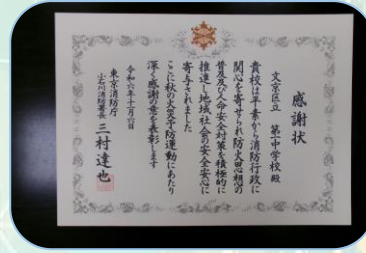 感謝状
文京区立 第一中学校殿
貴校は平素から消防行政に
関心を寄せられ防火思想の
普及及び人命安全対策を積極的に
推進し地域社会の安全安心に
寄与されました
ここに秋の火災予防運動にあたり
深く感謝の意を表彰します
令和六年十一月六日
東京消防庁
小石川消防署長 三村達也